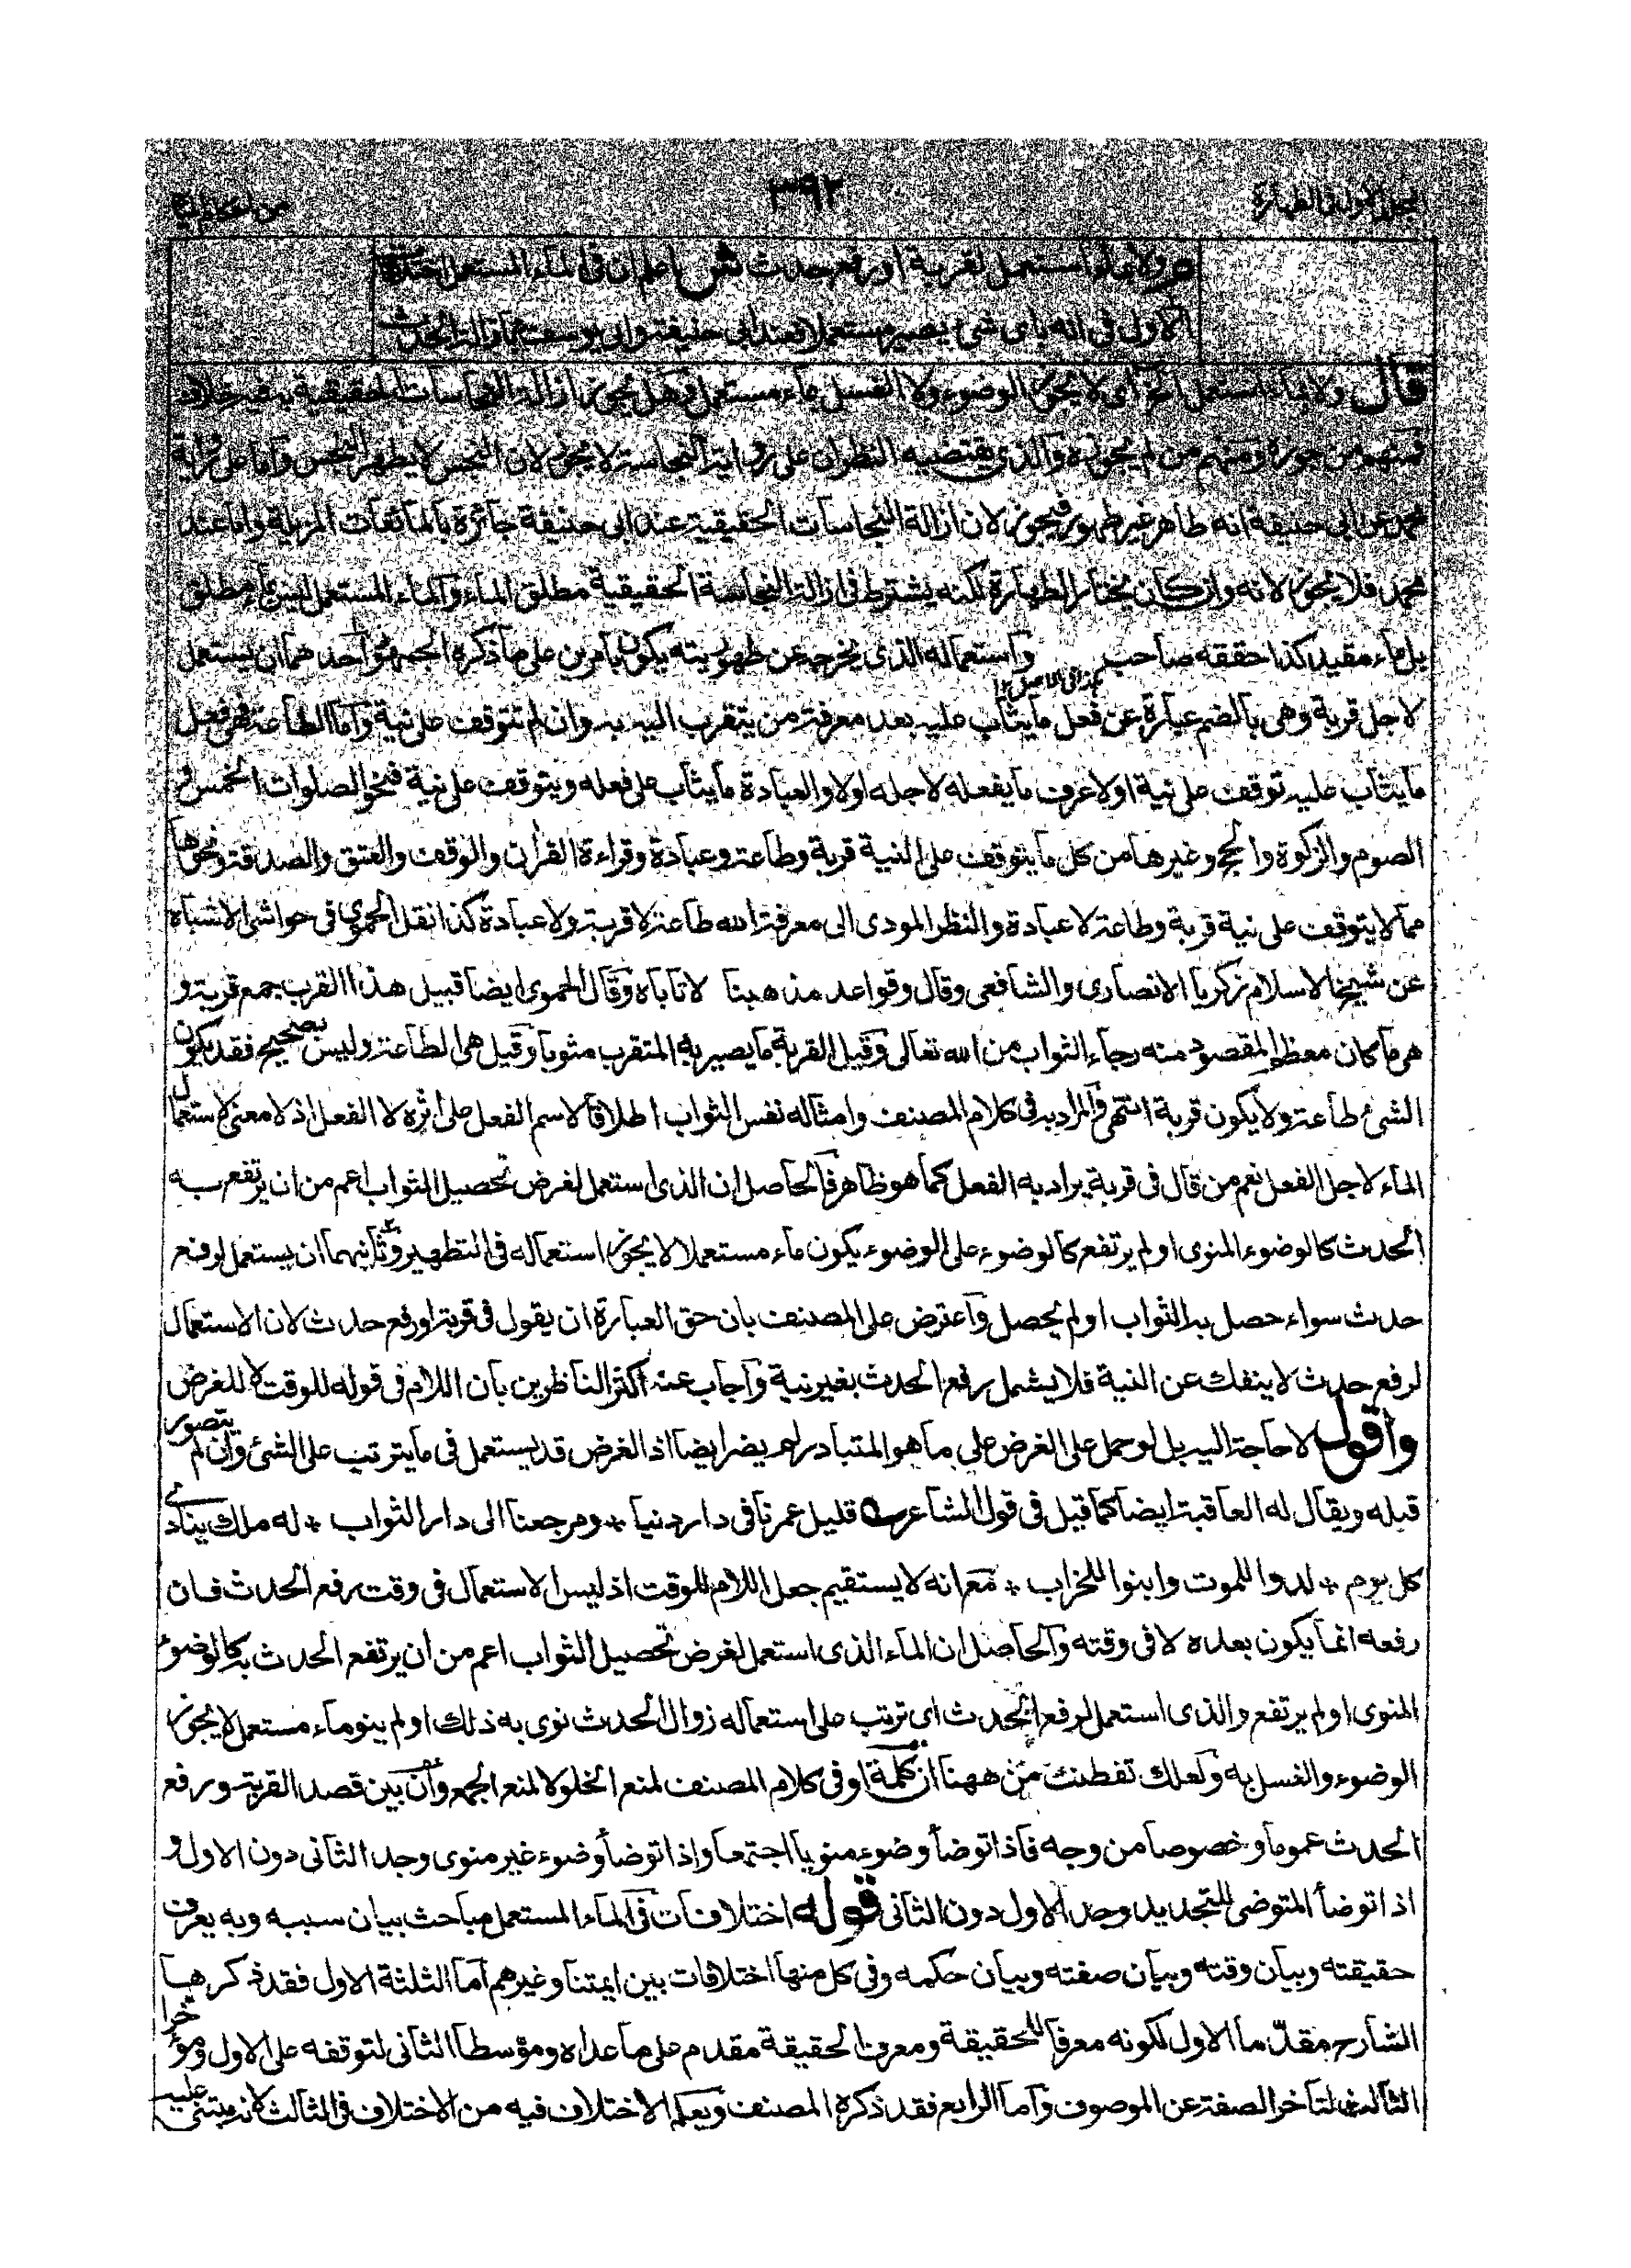 المجلد الاول فى الطهارة ٣٩٢ من احكام المياه
ص ولا بماء استعمل لقربة او رفع حدث ش اعلم ان فى الماء المستعمل اختلافات
الاول فى انه باى شئ يصير مستعملا فعند ابى حنيفة وابى يوسف بازالة الحدث
قال ولا بماء استعمل الخ اى لا يجوز الوضوء ولا الغسل بماء مستعمل وهل يجوز ازالة النجاسات الحقيقية به فيه خلاف
فمنهم من جوزه ومنهم من لم يجوزه والذى يقتضيه النظر ان على رواية النجاسة لا يجوز لان النجس لا يطهر النجس واما على رواية
محمد عن ابى حنيفة انه طاهر غير طهور فيجوز لان ازالة النجاسات الحقيقية عند ابى حنيفة جائزة بالمائعات المزيلة واما عند
محمد فلا يجوز لانه وان كان يختار الطهارة لكنه يشترط فى ازالة النجاسة الحقيقية مطلق الماء والماء المستعمل ليس بماء مطلق
بل ماء مقيد كذا حققه صاحب واستعماله الذى يخرجه عن طهوريته يكون بامرين على ما ذكره الجمهور احدهما ان يستعمل
كذا فى الاصل ١٢
لاجل قربة وهى بالضم عبارة عن فعل ما يثاب عليه بعد معرفة من يتقرب اليه به وان لم تتوقف على نية واما الطاعة فهى فعل
ما يثاب عليه توقف على نية اولا عرف ما يفعله لاجله اولا والعبادة ما يثاب على فعله ويتوقف على نية فنحو الصلوات الخمس و
الصوم والزكوة والحج وغيرها من كل ما يتوقف على النية قربة وطاعة وعبادة وقراءة القران والوقف والعتق والصدقة ونحوها
مما لا يتوقف على نية قربة وطاعة لا عبادة والنظر المودى الى معرفة الله طاعة لا قربة ولا عبادة كذا نقل الحموى فى حواشى الاشباه
عن شيخ الاسلام زكريا الانصارى والشافعى وقال وقواعد مذهبنا لا تاباه وقال الحموى ايضا قبيل هذا القرب جمع قربة و
هى ما كان معظم المقصود منه رجاء الثواب من الله تعالى وقيل القربة ما يصير به المتقرب مثوبا وقيل هى الطاعة وليس بصحيح فقد يكون
الشئ طاعة ولا يكون قربة انتهى والمراد به فى كلام المصنف وامثاله نفس الثواب اطلاقا لاسم الفعل على اثره لا الفعل اذ لا معنى لاستعمال
الماء لاجل الفعل نعم من قال فى قربة يراد به الفعل كما هو ظاهر فالحاصل ان الذى استعمل لغرض تحصيل الثواب اعم من ان يرتفع به
الحدث كالوضوء المنوى او لم يرتفع كالوضوء على الوضوء يكون ماء مستعملا لا يجوز استعماله فى التطهير وثانيهما ان يستعمل لرفع
حدث سواء حصل به الثواب او لم يحصل واعترض على المصنف بان حق العبارة ان يقول فى قربة او رفع حدث لان الاستعمال
لرفع حدث لا ينفك عن النية فلا يشمل رفع الحدث بغير نية واجاب عنه اكثر الناظرين بان اللام فى قوله للوقت لا للغرض
واقول لا حاجة اليه بل لو حمل على الغرض على ما هو المتبادر لم يضر ايضا اذ الغرض قد يستعمل فى ما يترتب على الشئ وان لم يتصور
قبله ويقال له العاقبة ايضا كما قيل فى قول الشاعر قليل عمرنا فى دار دنيا * ومرجعنا الى دار الثواب * له ملك ينادى
كل يوم * لدوا للموت وابنوا للخراب * مع انه لا يستقيم جعل اللام للوقت اذ ليس الاستعمال فى وقت رفع الحدث فان
رفعه انما يكون بعده لا فى وقته والحاصل ان الماء الذى استعمل لغرض تحصيل الثواب اعم من ان يرتفع الحدث به كالوضوء
المنوى او لم يرتفع والذى استعمل لرفع الحدث اى ترتب على استعماله زوال الحدث نوى به ذلك او لم ينو ماء مستعمل لا يجوز
الوضوء والغسل به ولعلك تفطنت من ههنا ان كلمة او فى كلام المصنف لمنع الخلو لا لمنع الجمع وان بين قصد القربة ورفع
الحدث عموما وخصوصا من وجه فاذا توضأ وضوء منويا اجتمعا واذا توضأ وضوء غير منوى وجد الثانى دون الاول و
اذا توضأ المتوضى للتجديد وجد الاول دون الثانى قوله اختلافات فى الماء المستعمل مباحث بيان سببه وبه يعرف
حقيقته وبيان وقته وبيان صفته وبيان حكمه وفى كل منها اختلافات بين ايمتنا وغيرهم اما الثلثة الاول فقد ذكرها
الشارح مقدما الاول لكونه معرفا للحقيقة ومعرف الحقيقة مقدم على ما عداه ومؤسطا الثانى لتوقفه على الاول ومؤخرا
الثالث لتاخر الصفة عن الموصوف واما الرابع فقد ذكره المصنف ويعلم الاختلاف فيه من الاختلاف فى الثالث لانه مبتنى عليه